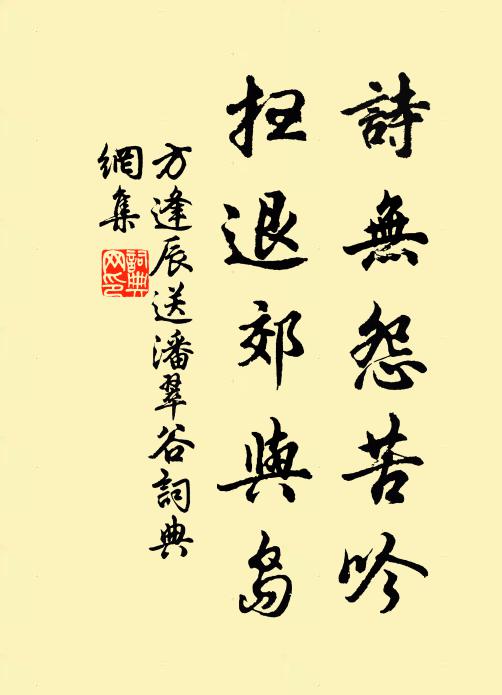 詩無怨苦吟
抂退郊與島
方逢辰送潘翠谷詞典
網集
詞典
网印